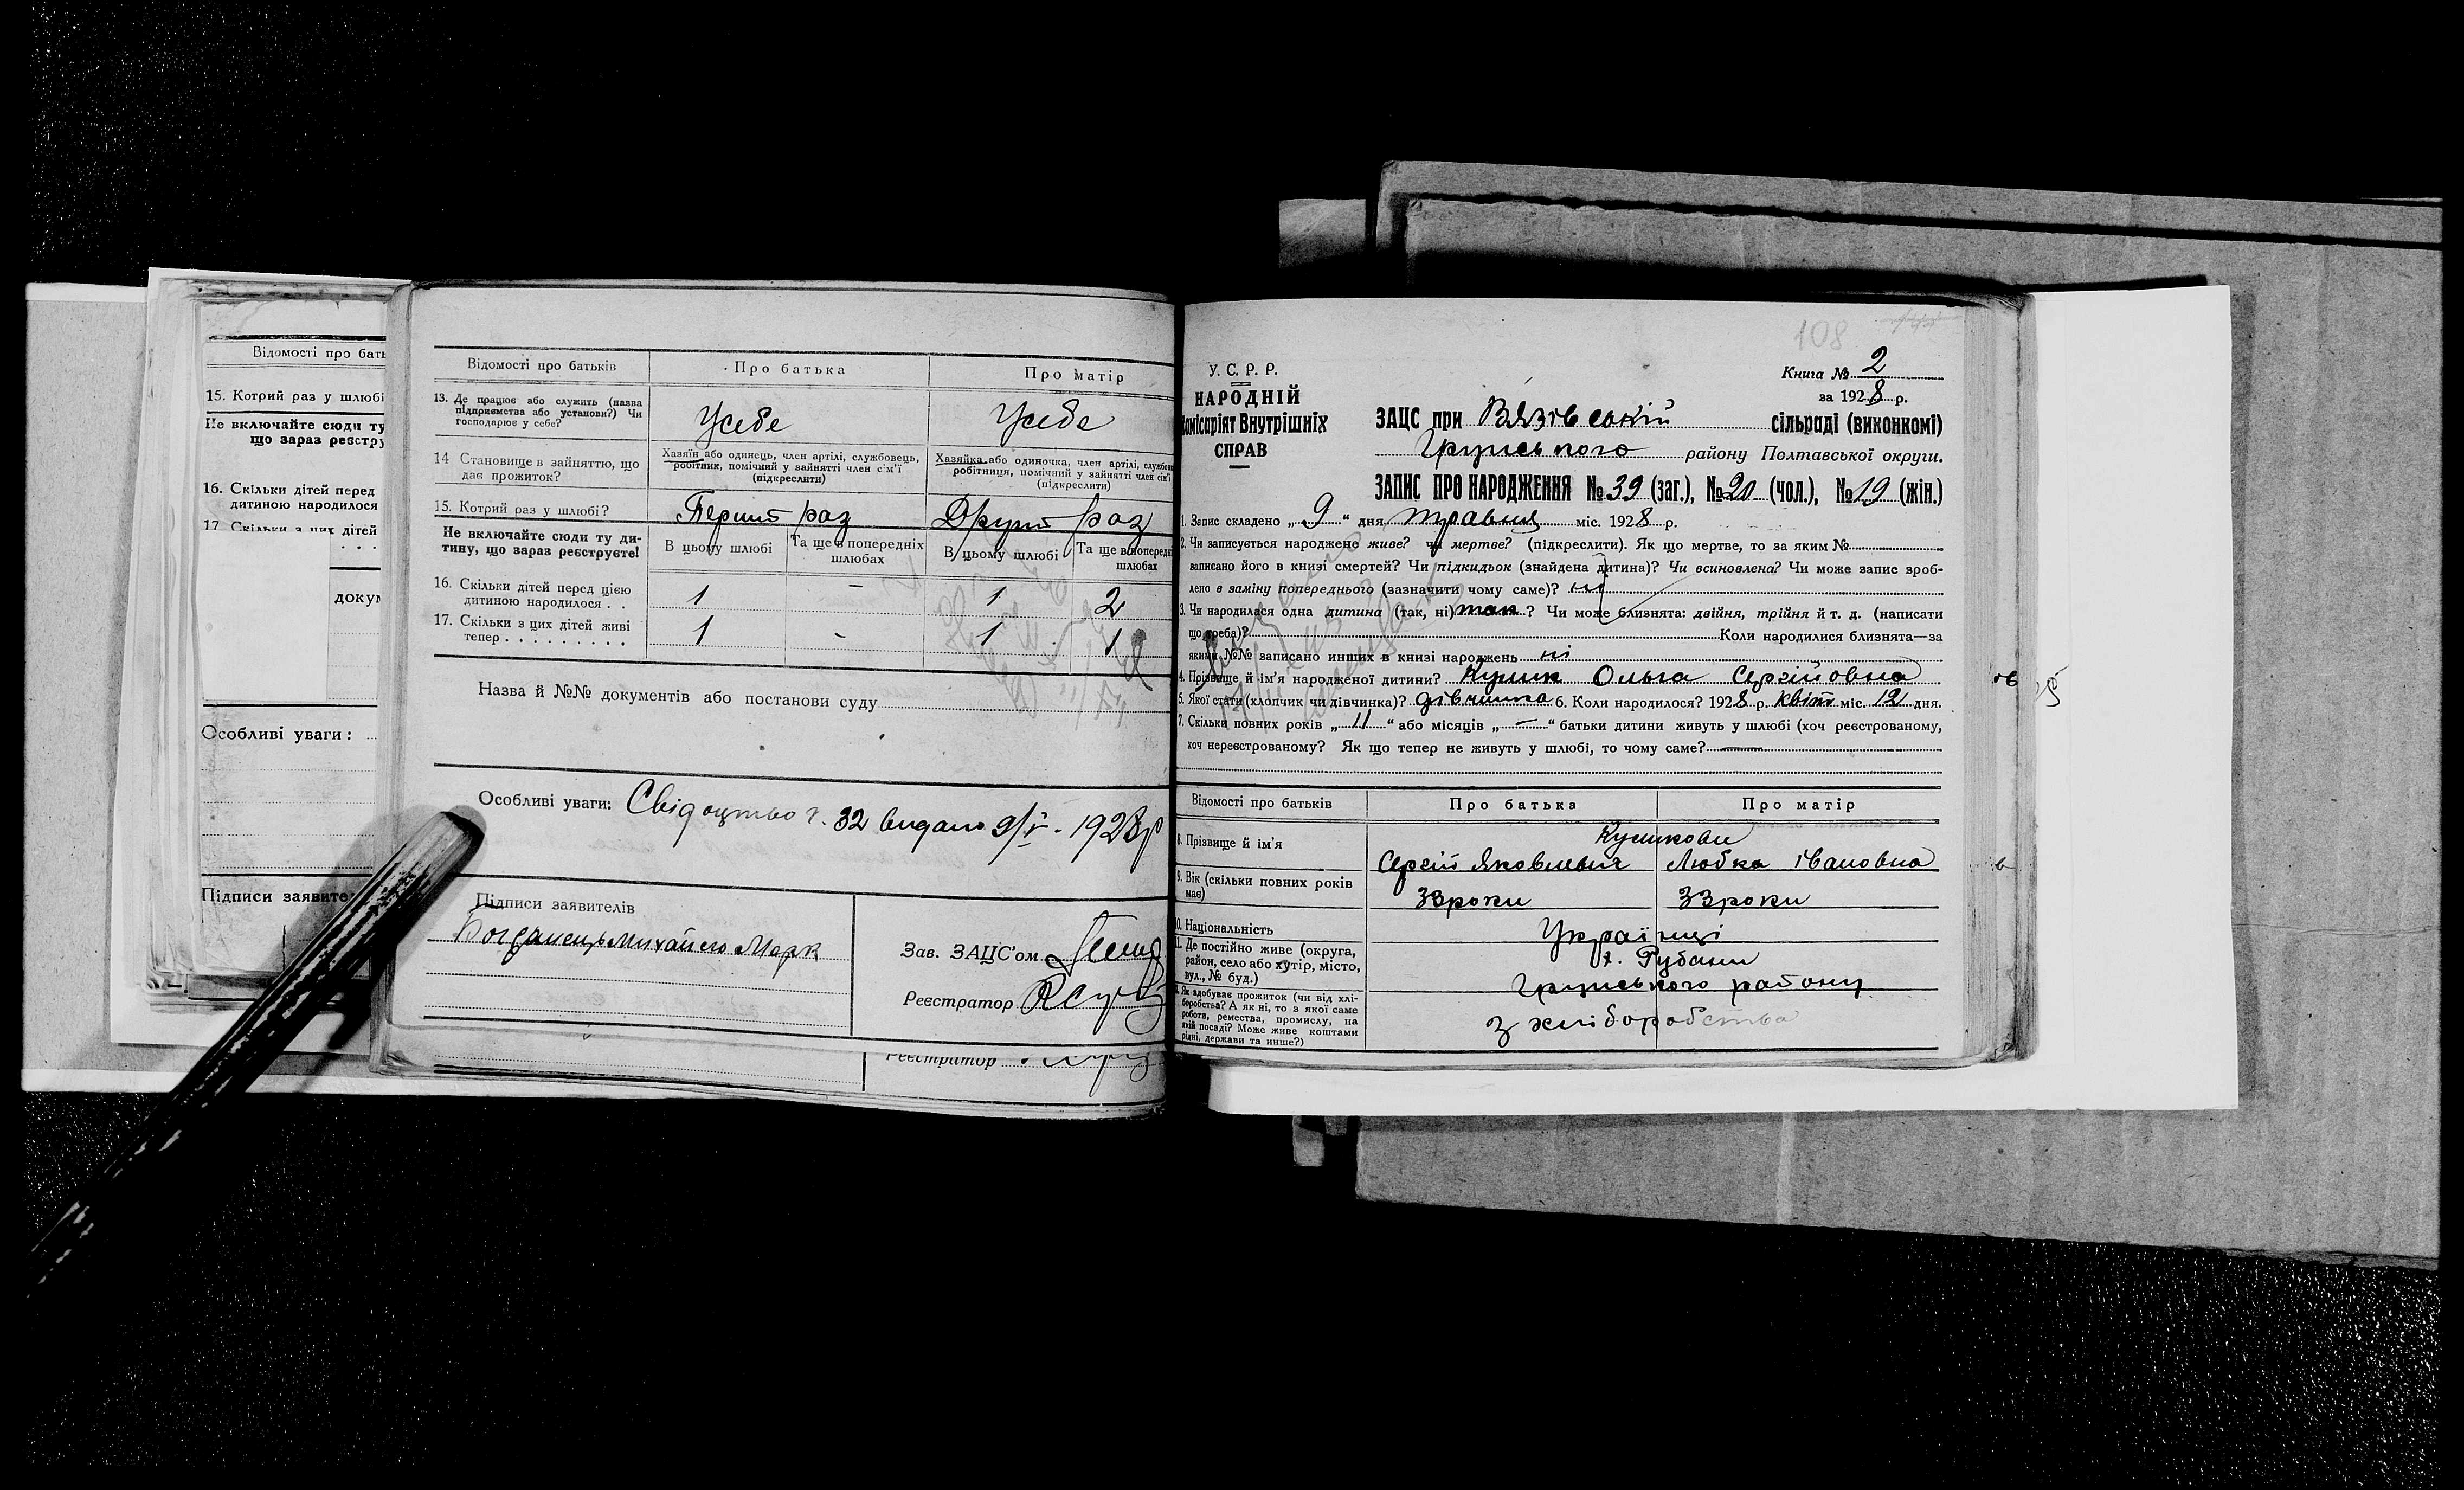 Відомості про бать
15. Котрий раз у шлюбі
Не включайте сюди ту
що зараз реєстру
16. Скільки дітей перед
дитиною народилося
17. Скільки з цих дітей
докум
Особливі уваги:
Підписи заявите
Відомості про батьків
Про батька
Про матір
13. Де працює або служить (назва
підприємства або установи?) Чи
господарює у себе?
Усебе
Усебе
14 Становище в зайняттю, що
дає прожиток?
Хазяїн або одинець, член артілі, службовець,
робітник, помічний у зайнятті член сім'ї
(підкреслити)
Хазяйка або одиночка, член артілі, службов
робітниця, помічний у зайнятті член сім'ї
(підкреслити)
15. Котрий раз у шлюбі?
Перший раз
Другий раз
Не включайте сюди ту ди-
тину, що зараз реєструєте!
В цьому шлюбі
Та ще в попередніх
шлюбах
В цьому шлюбі
Та ще в попередн
шлюбах
16. Скільки дітей перед цією
дитиною народилося . .
1 - 1 2
17. Скільки з цих дітей живі
тепер . . . . . . . . .
1 - 1 1
Назва й №№ документів або постанови суду
Особливі уваги: Свідоцтво ч. 32 видано 9/V - 1928р
Підписи заявителів
Зав. ЗАЦС'ом
Реєстратор
Реєстратор
108
У. С. Р. Р.
НАРОДНІЙ
Комісаріят Внутрішніх
СПРАВ
Книга № 2
за 1928 р.
ЗАЦС при Вязівській сільраді (виконкомі)
Грунського району Полтавської округи.
ЗАПИС ПРО НАРОДЖЕННЯ № 39 (заг.), № 20 (чол.), № 19 (жін.)
1. Запис складено „ 9 " дня травня міс. 1928 р.
2. Чи записується народжене живе? чи мертве? (підкреслити). Як що мертве, то за яким №
записано його в книзі смертей? Чи підкидьок (знайдена дитина)? Чи всиновлена? Чи може запис зроб-
лено в заміну попереднього (зазначити чому саме)? ні
3. Чи народилася одна дитина (так, ні) так ? Чи може близнята: двійня, трійня й т. д. (написати
що треба)? Коли народилися близнята—за
якими №№ записано инших в книзі народжень ні
4. Прізвище й ім'я народженої дитини? Кулик Ольга Сергійовна
5. Якої стати (хлопчик чи дівчинка)? дівчинка 6. Коли народилося? 1928 р. квіт міс. 12 дня.
7. Скільки повних років „ 11 " або місяців „ — " батьки дитини живуть у шлюбі (хоч реєстрованому,
хоч нереєстрованому? Як що тепер не живуть у шлюбі, то чому саме? —
Відомості про батьків
Про батька
Про матір
8. Прізвище й ім'я
Куликови
Сергій Яковлевич
Любка Івановна
9. Вік (скільки повних років
має)
33 роки
33 роки
10. Національність
Українці
11. Де постійно живе (округа,
район, село або хутір, місто,
вул., № буд.)
х. Рубани
Грунського району
12. Як здобуває прожиток (чи від хлі-
боробства? А як ні, то з якої саме
роботи, ремества, промислу, на
якій посаді? Може живе коштами
рідні, держави та инше?)
з хліборобства